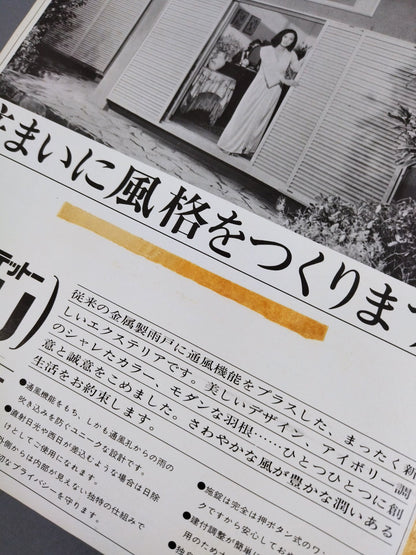 住まいに風格をつくります
デットー
従来の金属製雨戸に通風機能をプラスした、まったく新
しいエクステリアです。美しいデザイン、アイボリー調
のシャレたカラー、モダンな羽根……ひとつひとつに創
意と誠意をこめました。さわやかな風が豊かな潤いある
生活をお約束します。
●通風機能をもち、しかも通風孔からの雨の
吹き込みを防ぐユニークな設計です。
●直射日光や西日が差込むような場合は日除
けとしてご使用になれます。
外側からは内部が見えない独特の仕組みで
切なプライバシーを守ります。
●施錠は完全は押ボタン式のワ
クですから安心してお
●建付調整が簡単な
用のため
●独自